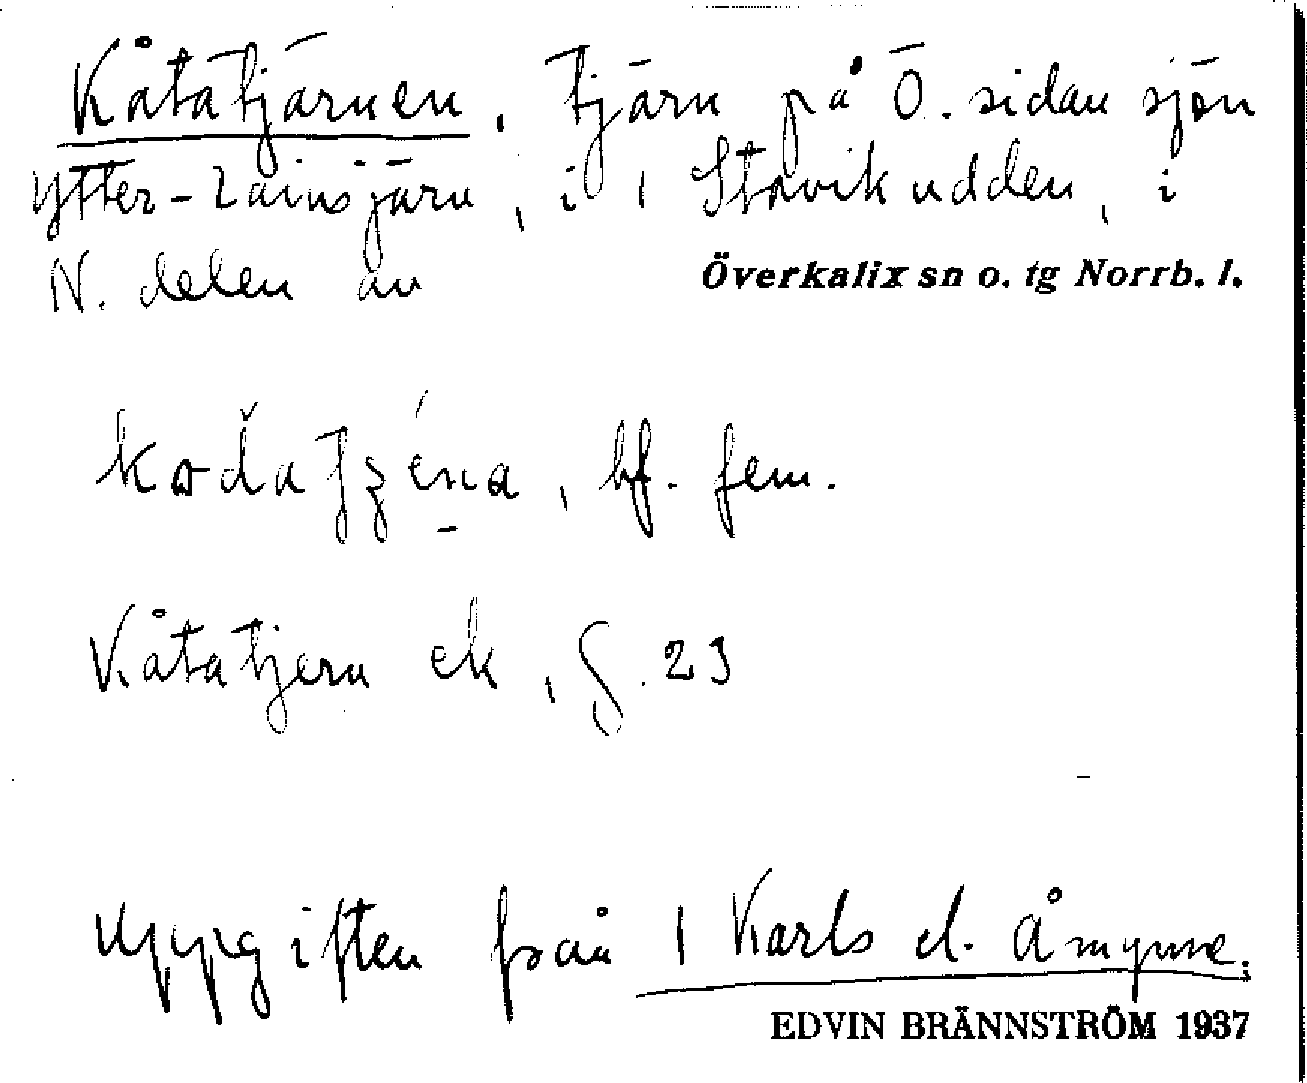 Kåtatjärnen, tjärn på Ö. sidan sjön
Ytter-Lainsjärv, i 1 Storvikudden, i
N. delen av Överkalix sn o. tg Norrb. l.
bf. fem.
Kåtatjern ek, §. 23
Uppgiften från 1 Karls d. Åmynne.
EDVIN BRÄNNSTRÖM 1937